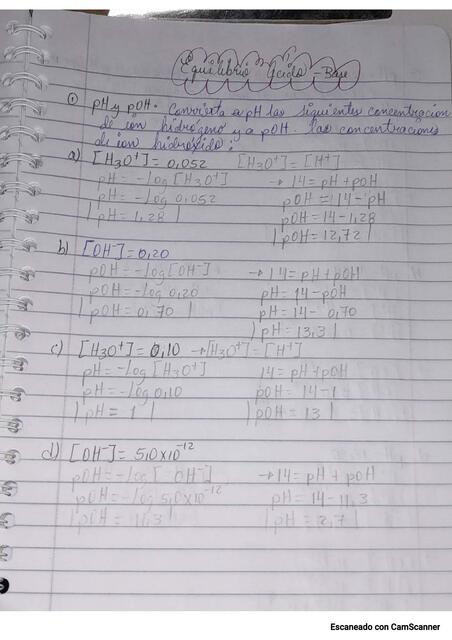 Equilibrio Ácido - Base
① pH y pOH. Convierta a pH las siguientes concentración
de ión hidrógeno y a pOH. las concentraciones
de ion hidróxido:
a) [H3O+] = 0,052 [H3O+] = [H+]
pH = -log [H3O+] → 14 = pH + pOH
pH = -log 0,052 pOH = 14 - pH
| pH = 1,28 | pOH = 14 - 1,28
| pOH = 12,72 |
b) [OH-] = 0,20
pOH = -log [OH-] → 14 = pH + pOH
pOH = -log 0,20 pH = 14 - pOH
| pOH = 0,70 | pH = 14 - 0,70
| pH = 13,3 |
c) [H3O+] = 0,10 → [H3O+] = [H+]
pH = -log [H3O+] 14 = pH + pOH
pH = -log 0,10 pOH = 14 - 1
| pH = 1 | | pOH = 13 |
d) [OH-] = 5,0 x 10^-12
pOH = -log [OH-] → 14 = pH + pOH
pOH = -log 5,0x10^-12 pH = 14 - 11,3
| pOH = 11,3 | | pH = 2,7 |
Escaneado con CamScanner